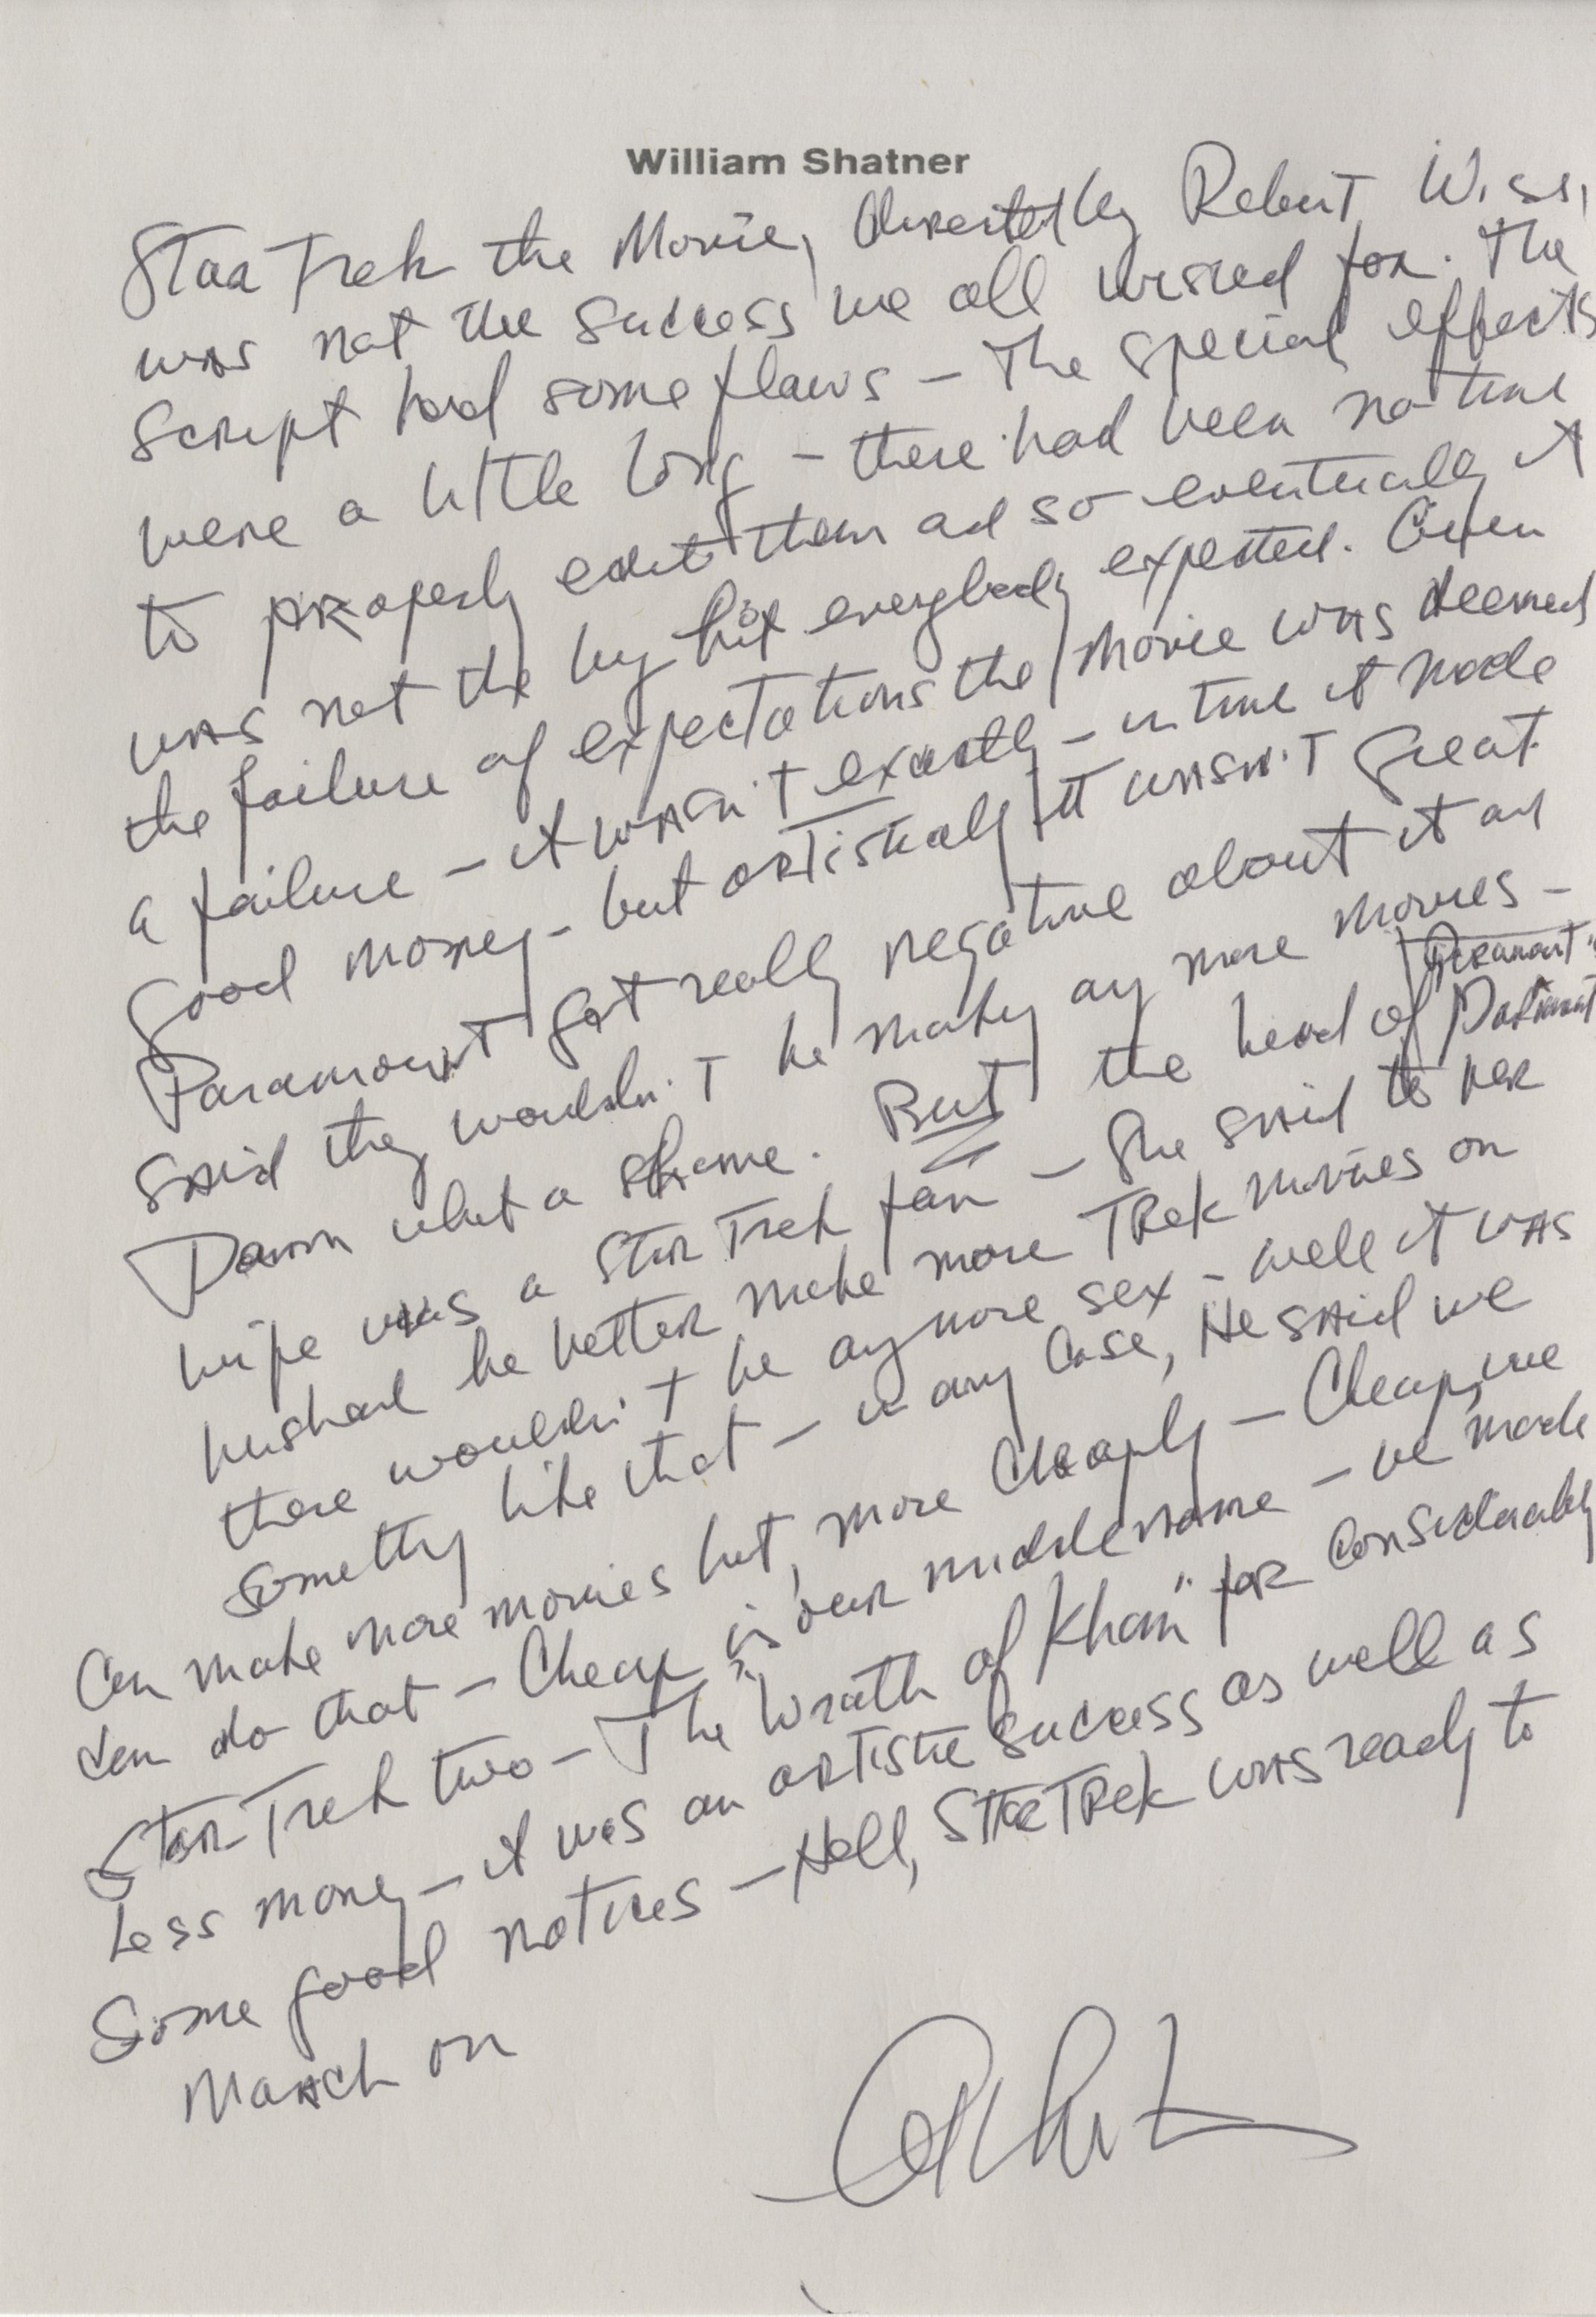 William Shatner
Star Trek the Movie, directed by Robert Wise,
was not the success we all wished for. The
script had some flaws – The special effects
were a little long – there had been no time
to properly edit them ad so eventually it
was not the big hit everybody expected. Given
the failure of expectations the movie was deemed
a failure – it wasn't exactly – in time it made
good money – but artistically it wasn't great.
Paramount got really negative about it an
said they wouldn't be making any more movies –
Damn what a shame. But the head of Paramount's
wife was a Star Trek fan – She said to her
husband he better make more Trek movies on
there wouldn't be anymore sex – well it was
something like that – in any case, He said we
can make more movies but, more cheaply – Cheap, we
can do that – Cheap is our middle name – we made
Star Trek two – "The Wrath of Khan" for considerably
less money – it was an artistic success as well as
some good notices – Hell, Star Trek was ready to
march on